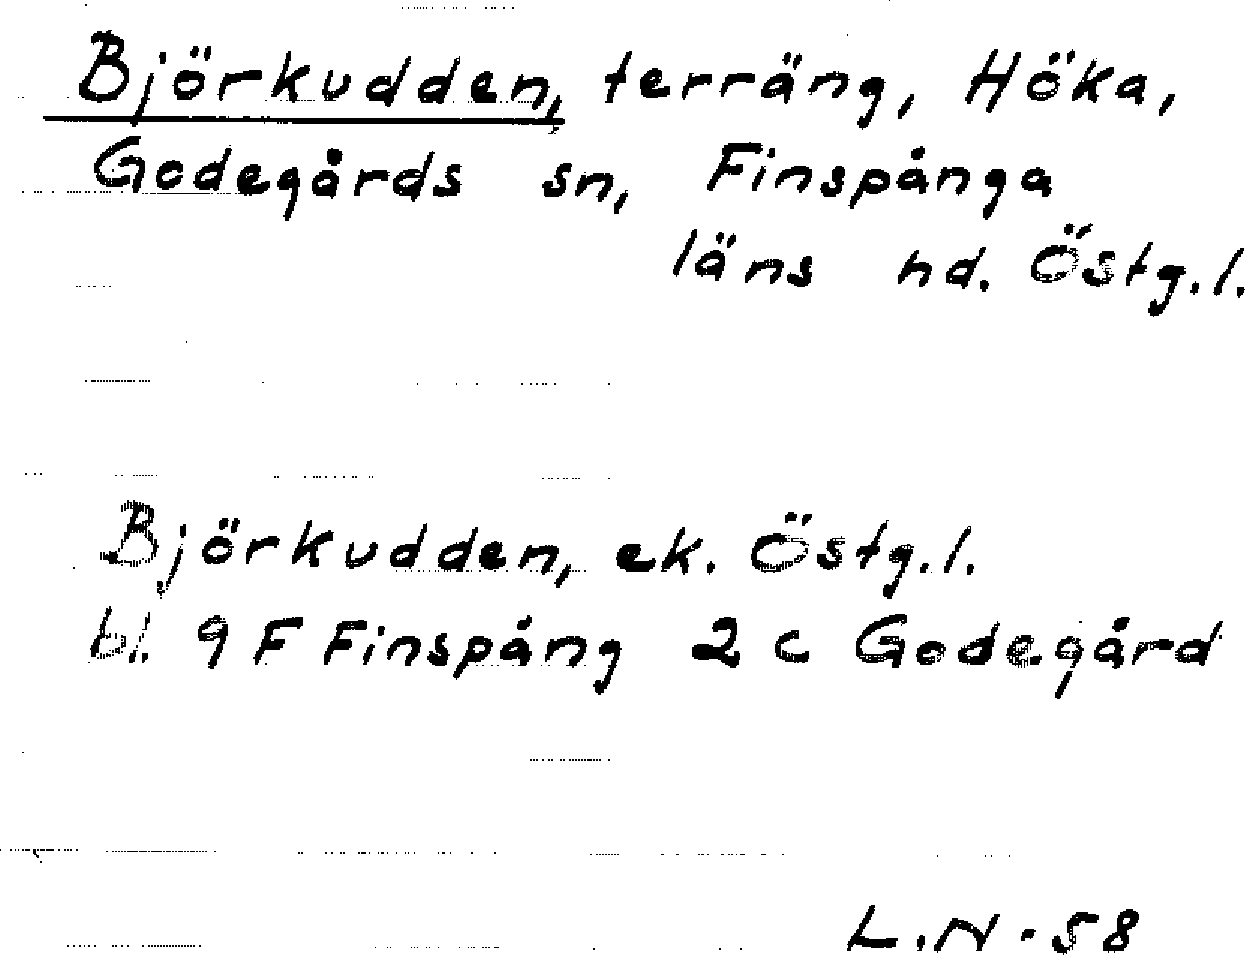 Björkudden, terräng, Höka,
Godegårds sn, Finspånga
läns hd. Östg.l.
Björkudden, ek. Östg.l.
bl. 9 F Finspång 2 c Godegård
L.N.58